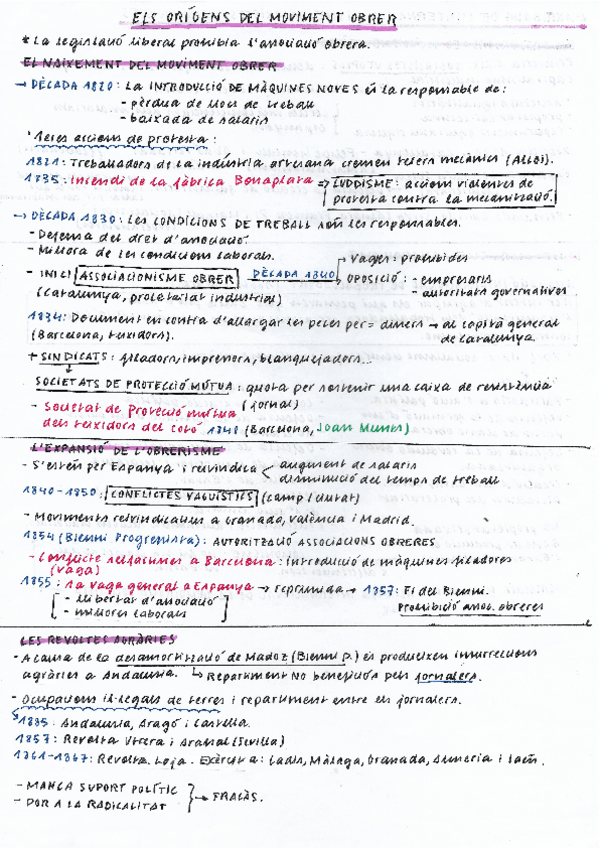 ELS ORÍGENS DEL MOVIMENT OBRER
* La legislació liberal prohibia l'associació obrera.
EL NAIXEMENT DEL MOVIMENT OBRER
→ DÈCADA 1820: La INTRODUCCIÓ DE MÀQUINES NOVES és la responsable de:
- pèrdua de lloc de treball
- baixada de salaris
1eres accions de protesta:
1821: Treballadors de la indústria artesana cremen telers mecànics (Alcoi).
1835: Incendi de la fàbrica Bonaplata ⇒ LUDDISME: accions violentes de
protesta contra la mecanització.
→ DÈCADA 1830: Les CONDICIONS DE TREBALL són les responsables.
- Defensa del dret d'associació.
- Millora de les condicions laborals.
- INICI ASSOCIACIONISME OBRER DÈCADA 1840 → Vagues: prohibides
(Catalunya, proletariat industrial) → OPOSICIÓ: - empresaris
- autoritats governatives
1834: Document en contra d'allargar les peces per = diners → al capità general
(Barcelona, teixidors). de Catalunya.
+ SINDICATS: filadors, impressors, blanquejadors...
SOCIETATS DE PROTECCIÓ MÚTUA: quota per sostenir una caixa de resistència
- Societat de Protecció mútua (jornal)
dels teixidors del cotó 1840 (Barcelona, Joan Munts)
L'EXPANSIÓ DE L'OBRERISME
- S'estén per Espanya i reivindica < augment de salaris
disminució del temps de treball
1840-1850: CONFLICTES VAGUÍSTICS (camp/ciutat)
- Moviments reivindicatius a Granada, València i Madrid.
1854 (Bienni Progressista): AUTORITZACIÓ ASSOCIACIONS OBRERES.
- Conflicte selfactines a Barcelona: introducció de màquines filadores
(vaga)
1855: 1a vaga general a Espanya → reprimida → 1857: Fi del Bienni.
- llibertat d'associació Prohibició assoc. obreres
- millores laborals
LES REVOLTES AGRÀRIES
- A causa de la desamortització de Madoz (Bienni P.) es produeixen insurreccions
agràries a Andalusia. ↳ Repartiment NO beneficiós pels jornalers.
- Ocupacions il·legals de terres i repartiment entre els jornalers.
1885: Andalusia, Aragó i Castella.
1857: Revolta Utrera i Arahal (Sevilla)
1861-1867: Revolta Loja. Exèrcit a: Cadis, Màlaga, Granada, Almeria i Jaén.
- MANCA SUPORT POLÍTIC
- POR A LA RADICALITAT } → FRACÀS.